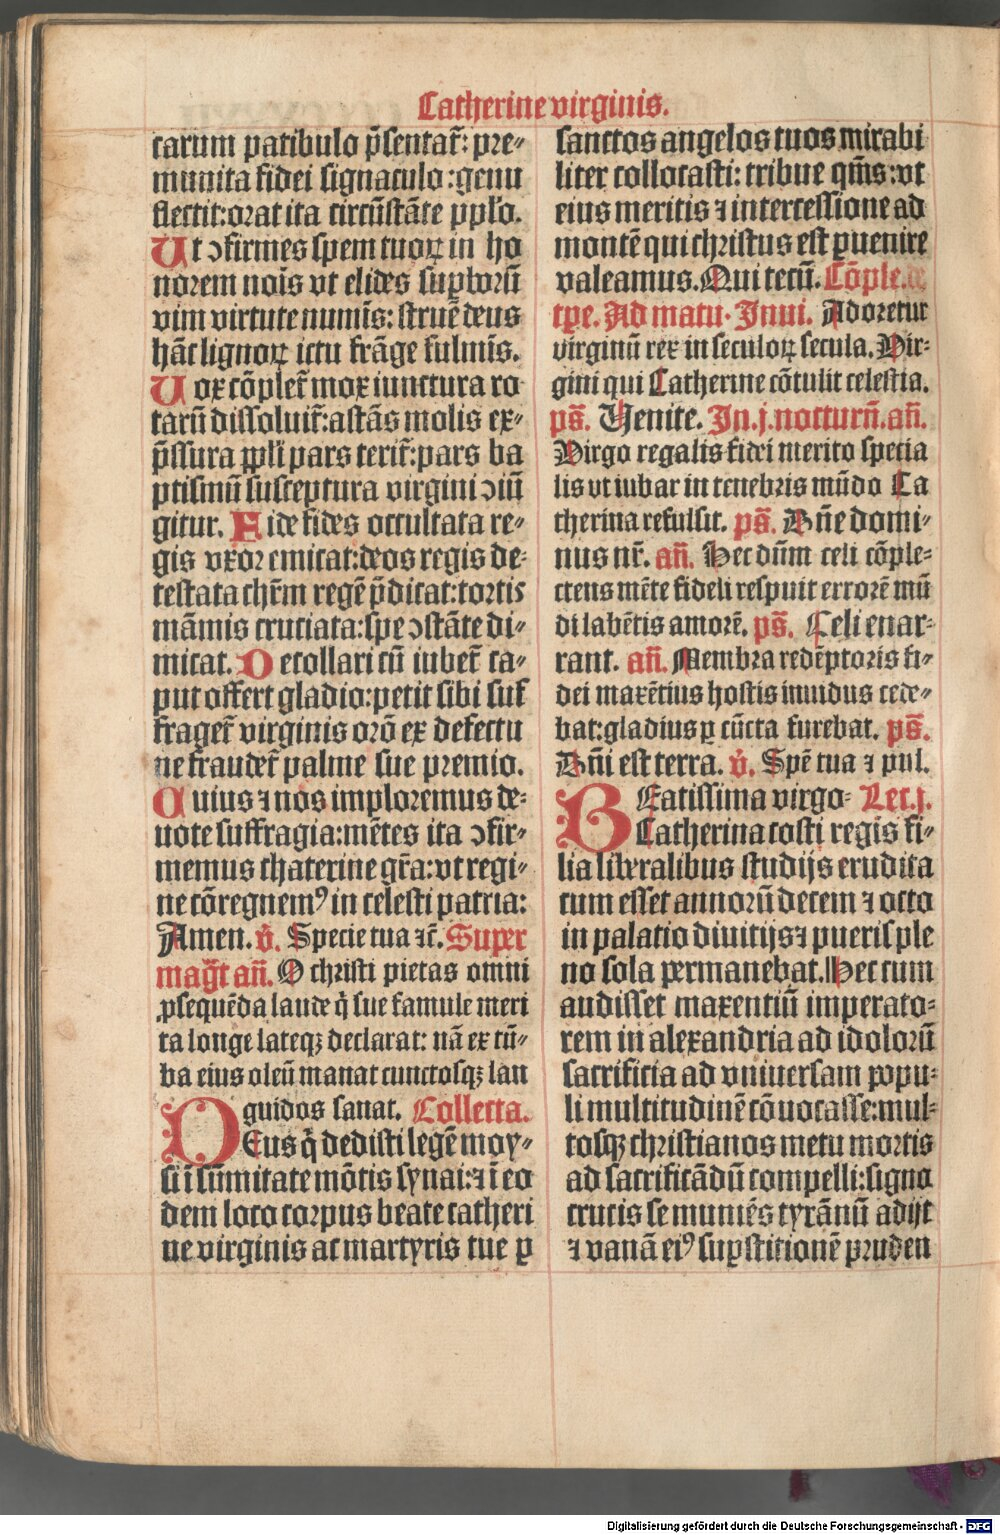 Catherine virginis.
carum patibulo p̄sentat᷑: pre⸗
munita fidei signaculo :genu
flectit:orat ita circūstāte pplo.
Ut ↄfirmes spem tuoꝝ in ho
norem nois vt elides supborū
vim virtute numis: strue deus
hāc lignoꝝ ictu frāge fulmis.
Uox cōplet᷑ mox iunctura ro
tarū dissoluit᷑:astās molis ex⸗
p̄ssura ppli pars terit᷑:pars ba
ptismū susceptura virgini ↄiū
gitur. Fide fides occultata re⸗
gis vxor emicat:deos regis de⸗
testata chrm regē p̄dicat:tortis
māmis cruciata:spe ↄstāte di⸗
micat. Decollari cū iubet᷑ ca⸗
put offert gladio:petit sibi suf
fraget᷑ virginis orō ex defectu
ne fraudet᷑ palme sue premio.
Cuius ⁊ nos imploremus de⸗
uote suffragia:mētes ita ↄfir⸗
memus chaterine gr̄a:vt regi⸗
ne cōregnemꝰ in celesti patria:
Amen. v̇. Specie tua ⁊c̄. Super
mag̅t an̄. O christi pietas omni
ꝓsequēda laude q̄ sue famule meri
ta longe lateqꝫ declarat: nā ex tū⸗
ba eius oleū manat cunctosqꝫ lan
guidos sanat. Collecta.
DEus q̄ dedisti legē moy⸗
si ī sūmitate mōtis synai:⁊ ī eo
dem loco corpus beate catheri
ne virginis ac martyris tue ꝑ
sanctos angelos tuos mirabi
liter collocasti: tribue qm̄s :vt
eius meritis ⁊ intercessione ad
montē qui christus est ꝑuenire
valeamus. Qui tecū. Cōple. de
tp̄e. Ad matu. Inui. Adoretur
virginū rex in seculoꝝ secula. Vir⸗
gini qui Catherine cōtulit celestia.
ps̄. Venite. In .j. nocturn̄. an̄.
Virgo regalis fidei merito specia
lis vt iubar in tenebris mūdo Ca
therina refulsit. ps̄. Dn̄e domi⸗
nus nr̄. an̄. Hec dūm celi cōple⸗
ctens mēte fideli respuit errorē mū
di labētis amorē. ps̄. Celi enar⸗
rant. an̄. Membra redēptoris fi⸗
dei maxētius hostis inuidus cede⸗
bat:gladius ꝑ cūcta furebat. ps̄.
Dn̄i est terra. v̇. Spē tua ⁊ pul.
BEatissima virgo⸗ Lec. j.
Catherina costi regis fi⸗
lia liberalibus studijs erudita
cum esset annorū decem ⁊ octo
in palatio diuitijs ⁊ pueris ple
no sola permanebat. Hec cum
audisset maxentiū imperato⸗
rem in alexandria ad idolorū
sacrificia ad vniuersam popu⸗
li multitudinē cōuocasse:mul⸗
tosqꝫ christianos metu mortis
ad sacrificādū compelli:signo
crucis se muniēs tyrānū adijt
⁊ vanā eiꝰ suꝑstitionē pruden
Digitalisierung gefördert durch die Deutsche Forschungsgemeinschaft - DFG